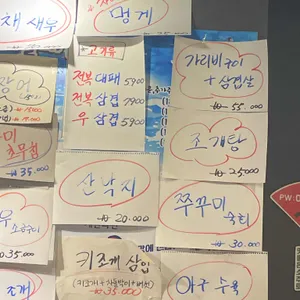 채 새우
멍게
고기류
전복 대패 5900
전복 삼겹 7900
우 삼겹 5900
가리비구이
+ 삼겹살
₩ 55.000
장어
초무침
₩ 35.000
조개탕
₩ 25000
산낙지
₩ 20.000
쭈꾸미
숙회
₩ 30.000
키조개 삼합
₩ 35.000
아구 수육
조개